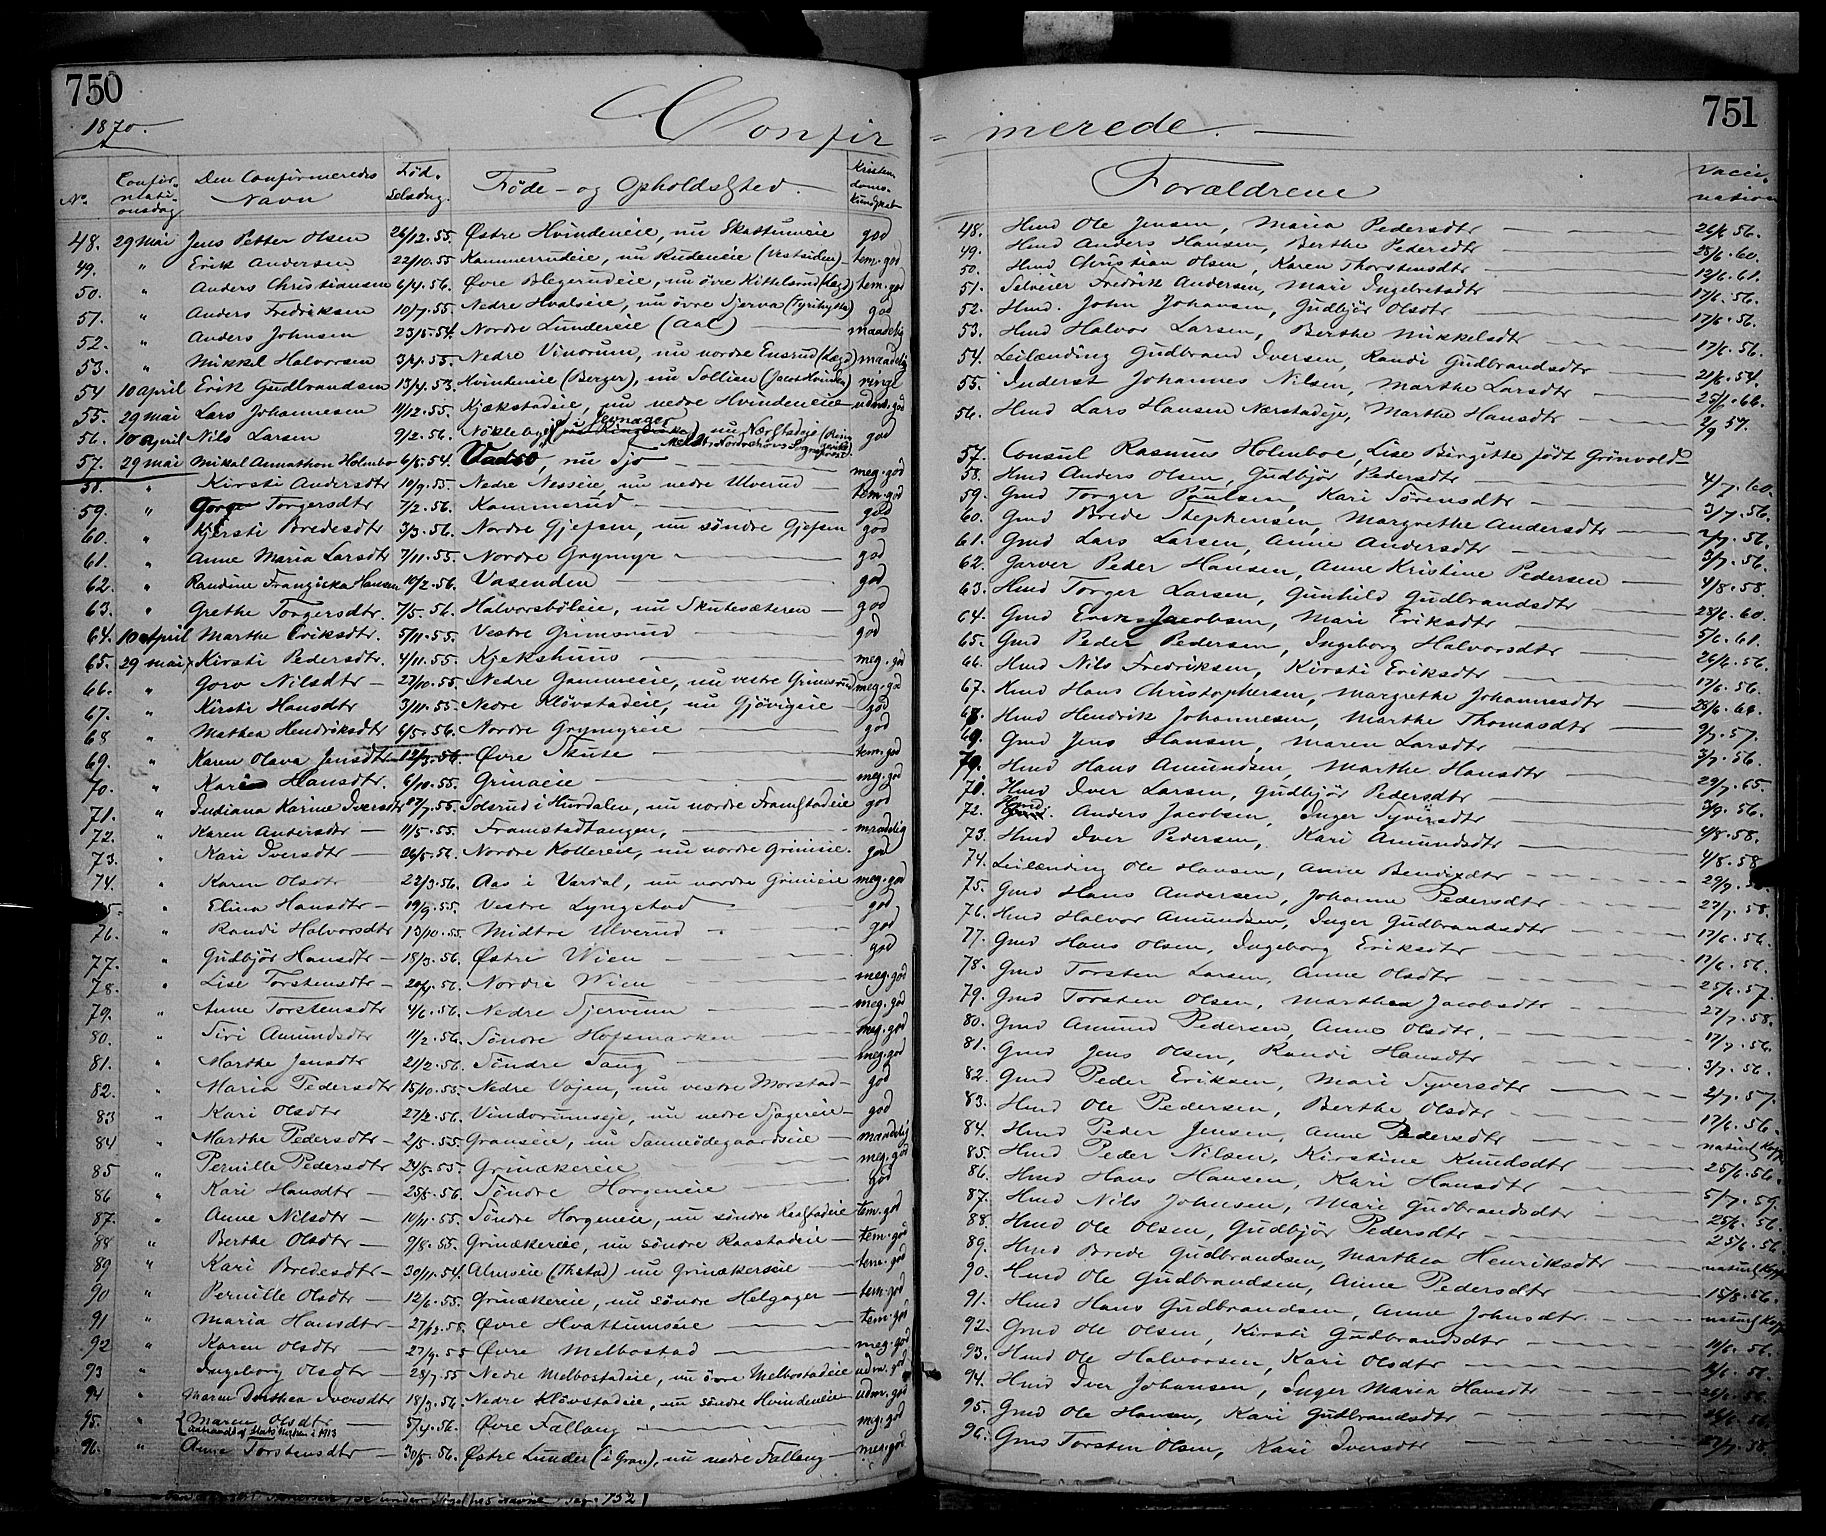 750
1870.
Confir
No.
Confirmationsdag
Den Confirmeredes Navn
Fødselsdag.
Føde- og Opholdssted.
Kristendomskundskab
48. 29 Mai Jens Petter Olsen 26/12.55. Østre Hvindeneie, nu Skattumeie god
49. " Erik Andersen 22/10.55 Kammerrudeie, nu Rudeneie (Vestsiden) tem. god
50. " Anders Christiansen 6/4.56. Øvre Blegerudeie, nu øvre Kittelsrud (Lagd) tem. god
51. " Anders Fredriksen 10/7.55. Nedre Hvalseie, nu øvre Tjerva god
52. " Anders Johnsen 23/5.54. Nordre Lundereie (Aal) maadelig
53. " Mikkel Halvorsen 3/4.55. Nedre Vinorum, nu nordre Ensrud maadelig
54 10 april Erik Gudbrandsen 13/4.53. Hvindeneie (Berger), nu Sollien (Jacob Hvinden) ringe
55. 29 mai Lars Johannesen 11/12.55. Kjækstadeie, nu nedre Hvindeneie udm. god
56. 10 april Nils Larsen 9/2.56. Nökleby i Jevnager, nu Nærstadeje god
57. 29 mai Mikal Annathon Holmboe 6/5.54. Vadsö, nu Tjo meg. god
58. " Kirsti Andersdtr 10/9.55 Nedre Nesseie, nu nedre Ulverud tem. god
59. " Gorge Torgersdtr 7/2.56. Kammerud god
60. " Kjersti Bredesdtr 3/3.56. Nordre Gjefsen, nu söndre Gjefsen god
61. " Anne Maria Larsdtr 7/11.55. Nordre Grymyr god
62. " Randine Franziska Hansen 10/2.56. Vasenden god
63. " Grethe Torgersdtr. 7/5.56. Halvorsböleie, nu Skutesæteren god
64. 10 april Marthe Eriksdtr. 5/11.55. Vestre Grimsrud god
65. 29 mai Kirsti Pedersdtr. 4/11.55. Kjekshuus meg. god
66. " Goro Nilsdtr 27/10.55. Nedre Gammeie, nu vestre Grimsrud meg. god
67. " Kirsti Hansdtr 3/11.55. Nedre Klövstadeie, nu Gjövigeie god
68 " Mathea Hendriksdtr 6/5.56. Nordre Grymyreie god
69. " Karen Olava Jensdtr 12/3.56. Øvre Skute tem. god
70. " Kari Hansdtr. 6/10.55. Grinaeie meg. god
71. " Indiana Karine Iversdtr 17/7.55. Idsrud i Hurdalen, nu nordre Framstadeie god
72. " Karen Andersdtr 11/5.55. Framstadtangen, maadelig
73. " Kari Iversdtr 26/5.56. Nordre Kollereie, nu nordre Grinieie. god
74. " Karen Olsdtr 22/3.56. Aas i Vardal, nu nordre Grinieie meg. god
75. " Elina Hansdtr 19/9.55. Vestre Lyngstad god
76. " Randi Halvorsdtr 13/10.55. Midtre Ulverud god
77. " Gudbjör Hansdtr 18/3.56. Østre Wien god
78. " Lise Torstensdtr 20/4.56. Nordre Wien meg. god
79. " Anne Torstensdtr 4/6.56. Nedre Tjervenn meg. god
80. " Siri Amundsdtr 11/2.56. Söndre Hofsmarken meg. god
81. " Marthe Jensdtr 21/2.56. Söndre Tang meg. god
82. " Maria Pedersdtr 15/10.55. Nedre Vøjen, nu vestre Morstad god
83 " Kari Olsdtr 27/2.56. Vindorumseje, nu nedre Tjagereie god
84 " Marthe Pedersdtr 2/5.55. Granseie, nu Sanneödegaardseie maadelig
85 " Pernille Pedersdtr 24/5.55. Grinækereie meg. god
86 " Kari Hansdtr 25/5.56. Söndre Horgeneie god
87. " Anne Nilsdtr 10/11.55. Söndre Horgeneie, nu söndre Raastadeie tem. god
88 " Berthe Olsdtr 9/8.55. Grinækereie, nu söndre Raastadeie tem. god
89 " Kari Bredesdtr 30/11.54. Almseie (Thstad) nu Grinækerseie tem. god
90 " Pernille Olsdtr 12/6.55. Grinækereie, nu söndre Helgager tem. god
91 " Maria Hansdtr 27/12.55. Øvre Hvattumseie tem. god
92 " Karen Olsdtr 27/9.55 Øvre Melbostad meg. god
93 " Ingeborg Olsdtr 28/7.55 Nedre Melbostadeie, nu övre Melbostadeie udm. god
94 " Maren Dorthea Iversdtr 18/3.56. Nedre Klövstadeie, nu söndre Hvindeneie udm. god
95. " Maren Olsdtr 5/4.56. Øvre Fallang meg. god
i 1913
96. " Anne Torstensdtr 30/5.56. Østre Lunder (i Gran), nu nedre Fallang meg. god
752
751
merede.
Forældrene
Vaccination
48. Hmd Ole Jensen, Maria Pedersdtr 26/6 56.
49. Hmd Anders Hansen, Berthe Pedersdtr 25/6.60.
50. Hmd Christian Olsen, Karen Thorstensdtr 12/6.61.
51. Selveier Fredrik Andersen, Mari Ingebretsdtr 17/6.56.
52. Hmd. John Johansen, Gudbjör Olsdtr 17/6.56.
53. Hmd Halvor Larsen, Berthe Mikkelsdtr 17/6.56.
54. Leilænding Gudbrand Iversen, Randi Gudbrandsdtr 21/6.54.
55. Inderst Johannes Nilsen, Marthe Larsdtr 25/1.66.
56. Hmd Lars Hansen Nærstadeje, Marthe Hansdtr 2/9 57.
57. Consul Rasmus Holmboe, Lise Birgitte födt Grönvold
58. Hmd Anders Olsen, Gudbjör Pedersdtr 4/7.60.
59. Gmd Torger Poulsen, Kari Sörensdtr 3/7.56.
60. Gmd Brede Stephensen, Margrethe Andersdtr 2/7.56.
61. Gmd Lars Larsen, Anne Andersdtr 3/7.56.
62. Garver Peder Hansen, Anne Kristine Pedersen 4/8.58.
63. Hmd Torger Larsen, Gunhild Gudbrandsdtr 28/6.60.
64. Gmd Erik Jacobsen, Mari Eriksdtr 5/6.61.
65. Gmd Peder Pedersen, Ingeborg Halvorsdtr 26/6.56.
66. Hmd Nils Fredriksen, Kirsti Eriksdtr 17/6.56.
67. Hmd Hans Christophersen, Margrethe Johannesdtr 28/6.66.
68. Hmd Hendrik Johannesen, Marthe Thomasdtr 9/7.57.
69. Gmd Jens Hansen, Maren Larsdtr 3/7.56.
70. Hmd Hans Amundsen, Marthe Hansdtr 29/7.65.
71. Hmd Iver Larsen, Gudbjör Pedersdtr 3/9.56.
72. Hmd. Anders Jacobsen, Inger Syversdtr 4/8.58.
73. Hmd Iver Pedersen, Kari Amundsdtr 4/8.58
74. Leilænding Ole Hansen, Anne Bendixdtr 29/9.
75. Gmd Hans Andersen, Johanne Pedersdtr 27/7.58.
76. Hmd Halvor Amundsen, Inger Gudbrandsdtr 17/6.56.
77. Gmd Hans Olsen, Ingeborg Eriksdtr 17/6.56.
78. Gmd Torsten Larsen, Anne Olsdtr 25/6.57.
79. Gmd Torsten Olsen, Marthea Jacobsdtr 27/7.58.
80. Gmd Amund Pedersen, Anne Olsdtr. 17/7.56.
81. Gmd Jens Olsen, Randi Hansdtr 3/7.56.
82. Gmd Peder Eriksen, Mari Syversdtr 2/7.57.
83. Hmd Ole Pedersen, Berthe Olsdtr 17/6.56.
84. Hmd Peder Jensen, Anne Pedersdtr naturl. Kopp.
85. Hmd Peder Nilsen, Kirstine Knudsdtr 25/6.56.
86. Hmd Hans Hansen, Kari Hansdtr 5/7.59.
87. Hmd Nils Johnsen, Mari Gudbrandsdtr 25/6.56.
88. Hmd Ole Olsen, Gudbjör Pedersdtr 25/6.56.
89. Hmd Brede Gudbrandsen, Marthea Henriksdtr naturl. Kopp.
90. Hmd Ole Gudbrandsen, Anne Pedersdtr 15/8.56.
91. Hmd Hans Gudbrandsen, Anne Johnsdtr. naturl. Kopp.
92. Gmd Ole Olsen, Kirsti Gudbrandsdtr 11/6.56.
93. Hmd Ole Halvorsen, Kari Olsdtr
94. Hmd Iver Johansen, Inger Maria Hansdtr 26/6.56.
95. Gmd Ole Hansen, Kari Gudbrandsdtr 26/6.56.
96. Gmd Torsten Olsen, Kari Iversdtr 27/7.58.